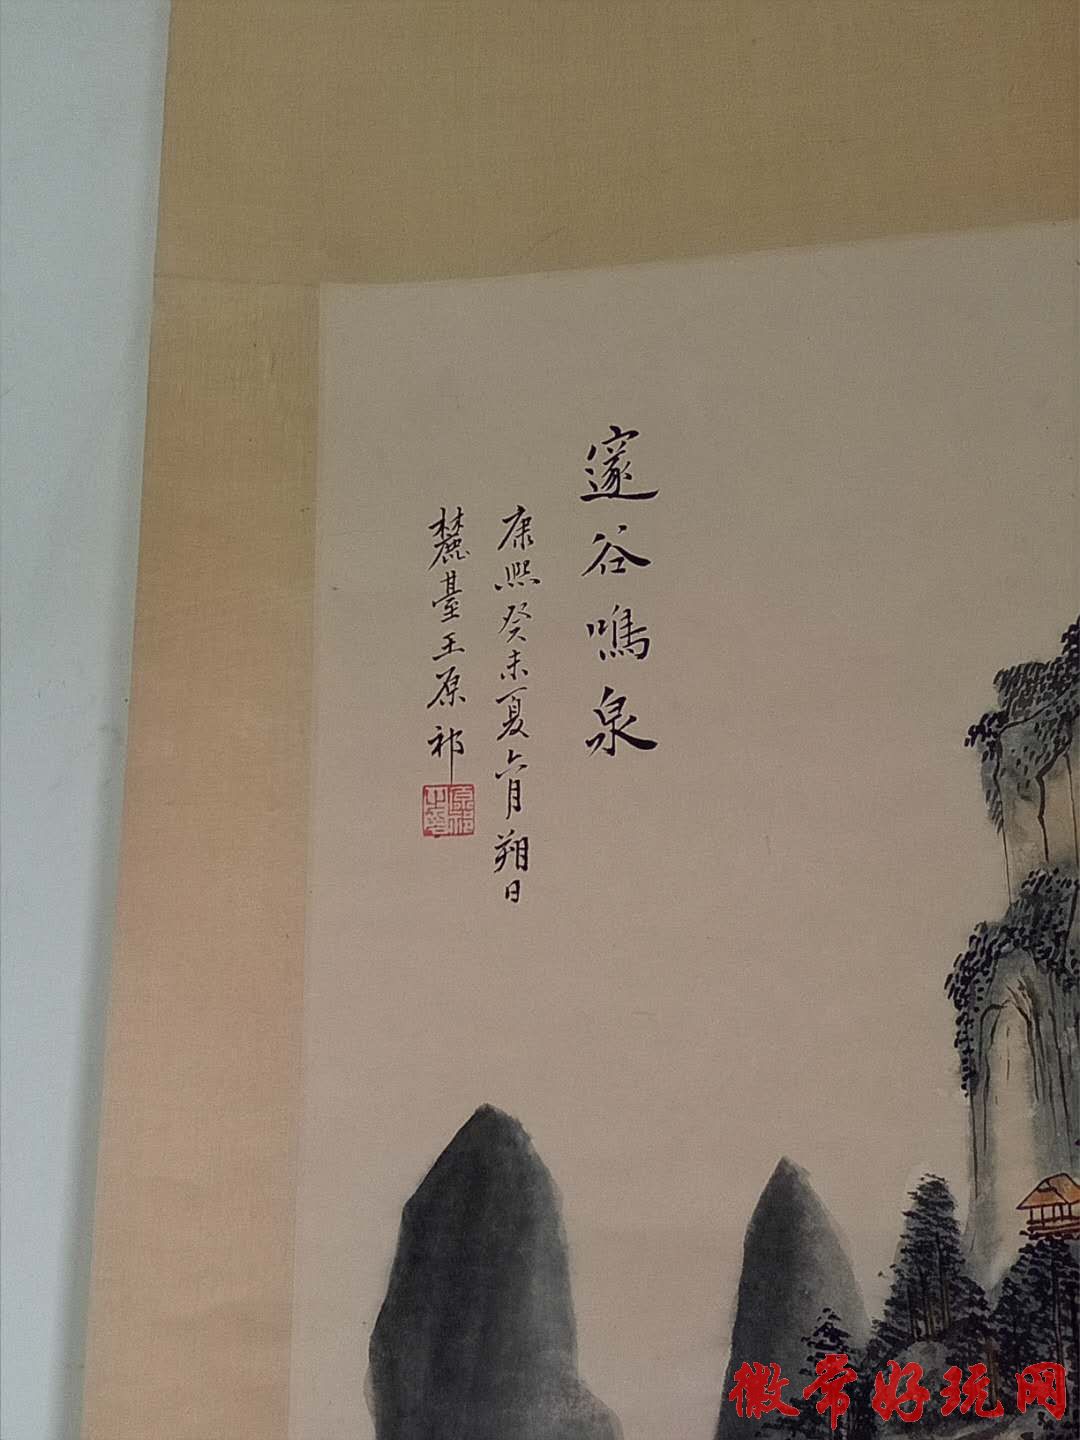 邃谷鳴泉
康熙癸未夏六月朔日
麓臺王原祁
原祁之印
微常好玩网